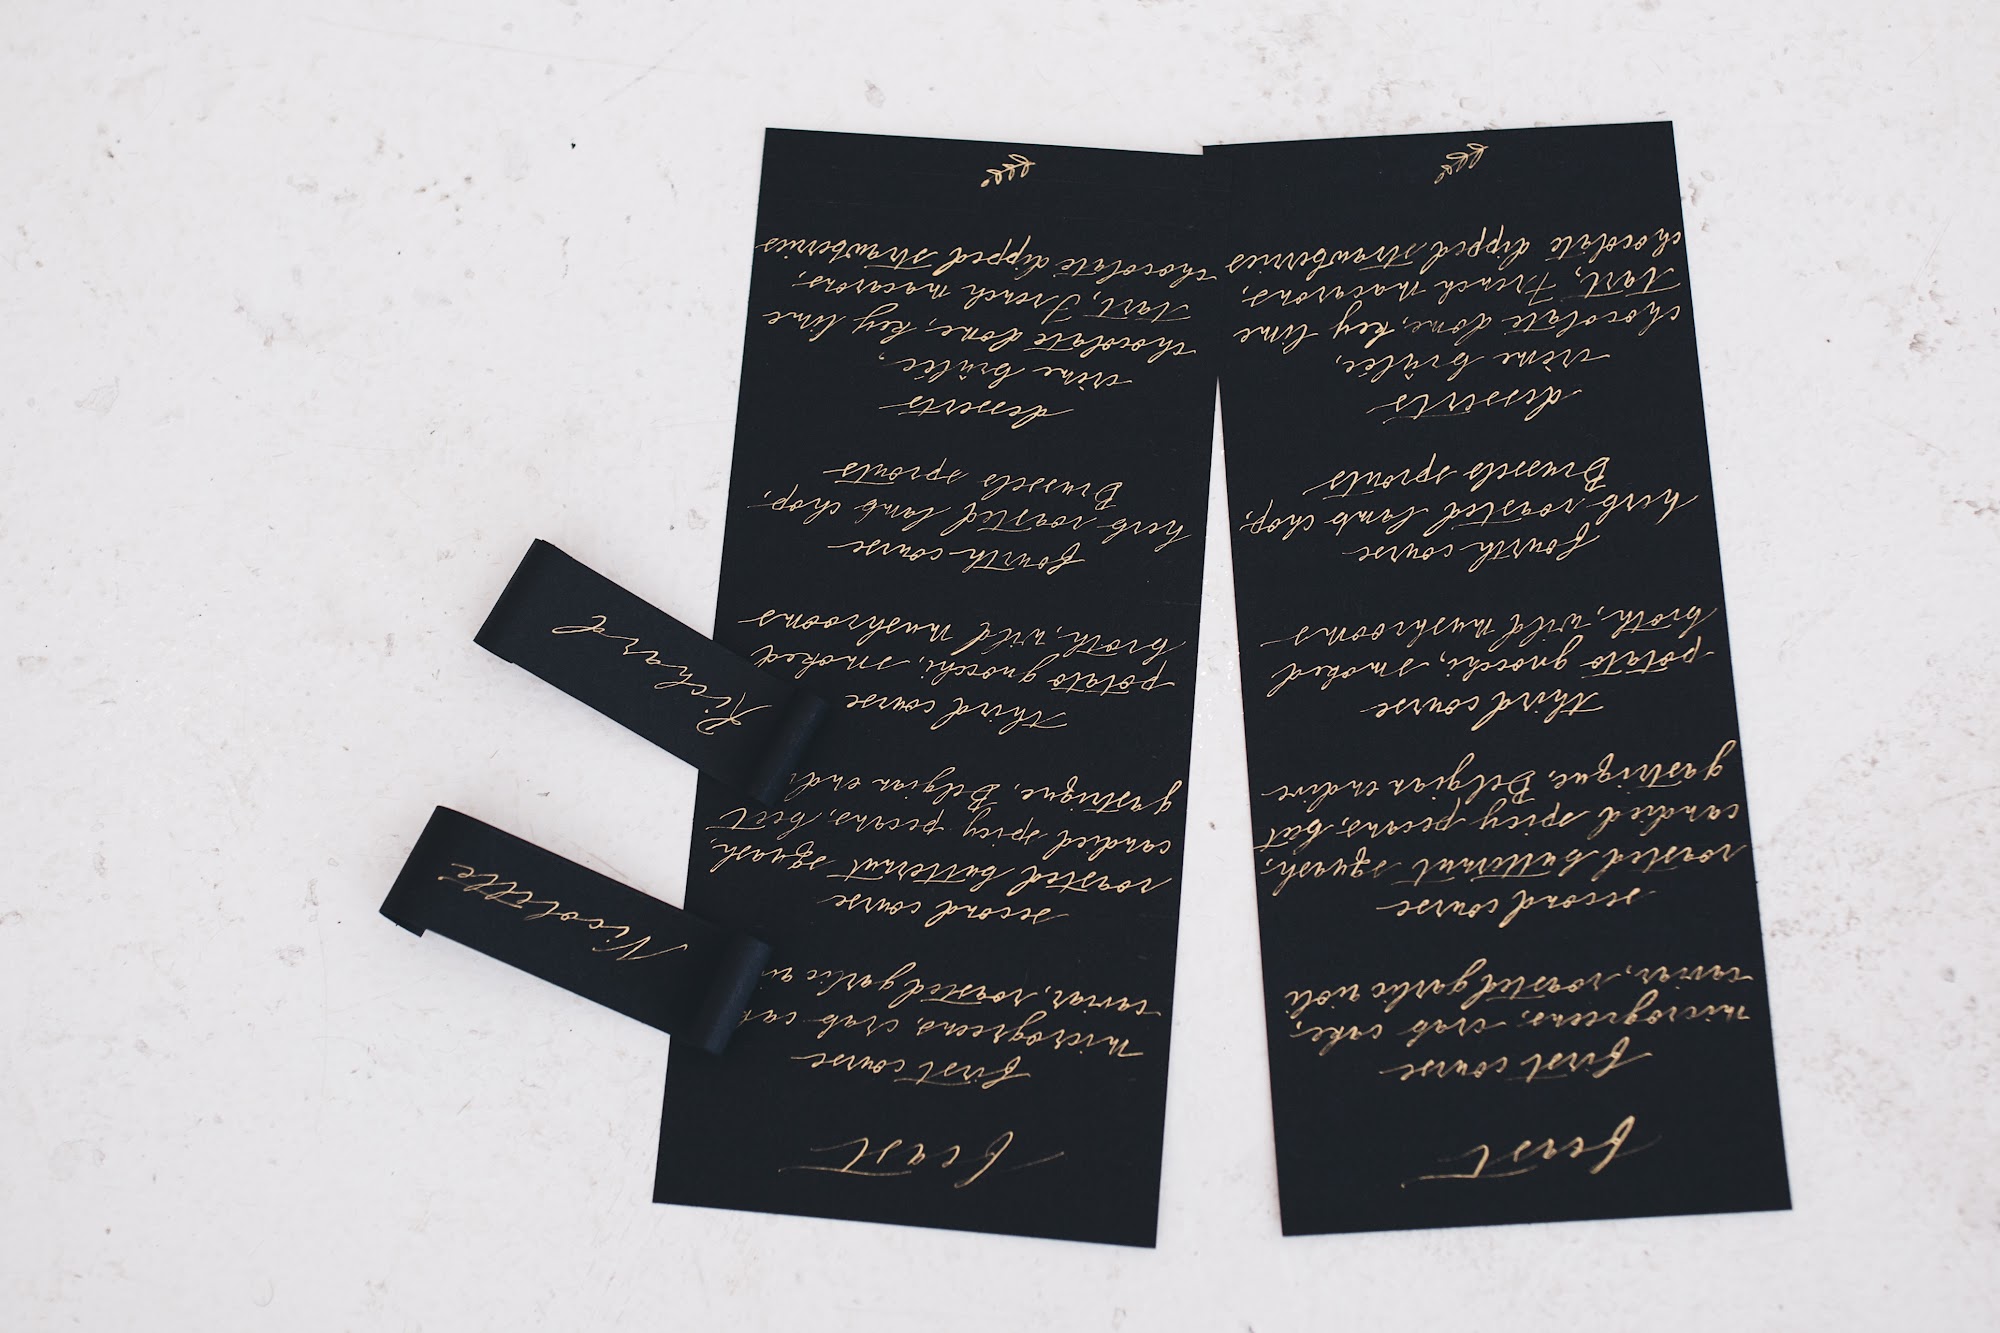 feast
first course
microgreens, crab
caviar, roasted garlic
second course
roasted butternut squash,
candied spicy pecans, beet
gastrique, Belgian endi
third course
potato gnocchi, smoked
broth, wild mushrooms
fourth course
herb roasted lamb chop,
Brussels sprouts
desserts
crème brûlée,
chocolate dome, key lime
tart, French macarons,
chocolate dipped strawberries
feast
first course
microgreens, crab cake,
caviar, roasted garlic aioli
second course
roasted butternut squash,
candied spicy pecans, beet
gastrique, Belgian endive
third course
potato gnocchi, smoked
broth, wild mushrooms
fourth course
herb roasted lamb chop,
Brussels sprouts
desserts
crème brûlée,
chocolate dome, key lime
tart, French macarons,
chocolate dipped strawberries
Nicolette
Richard